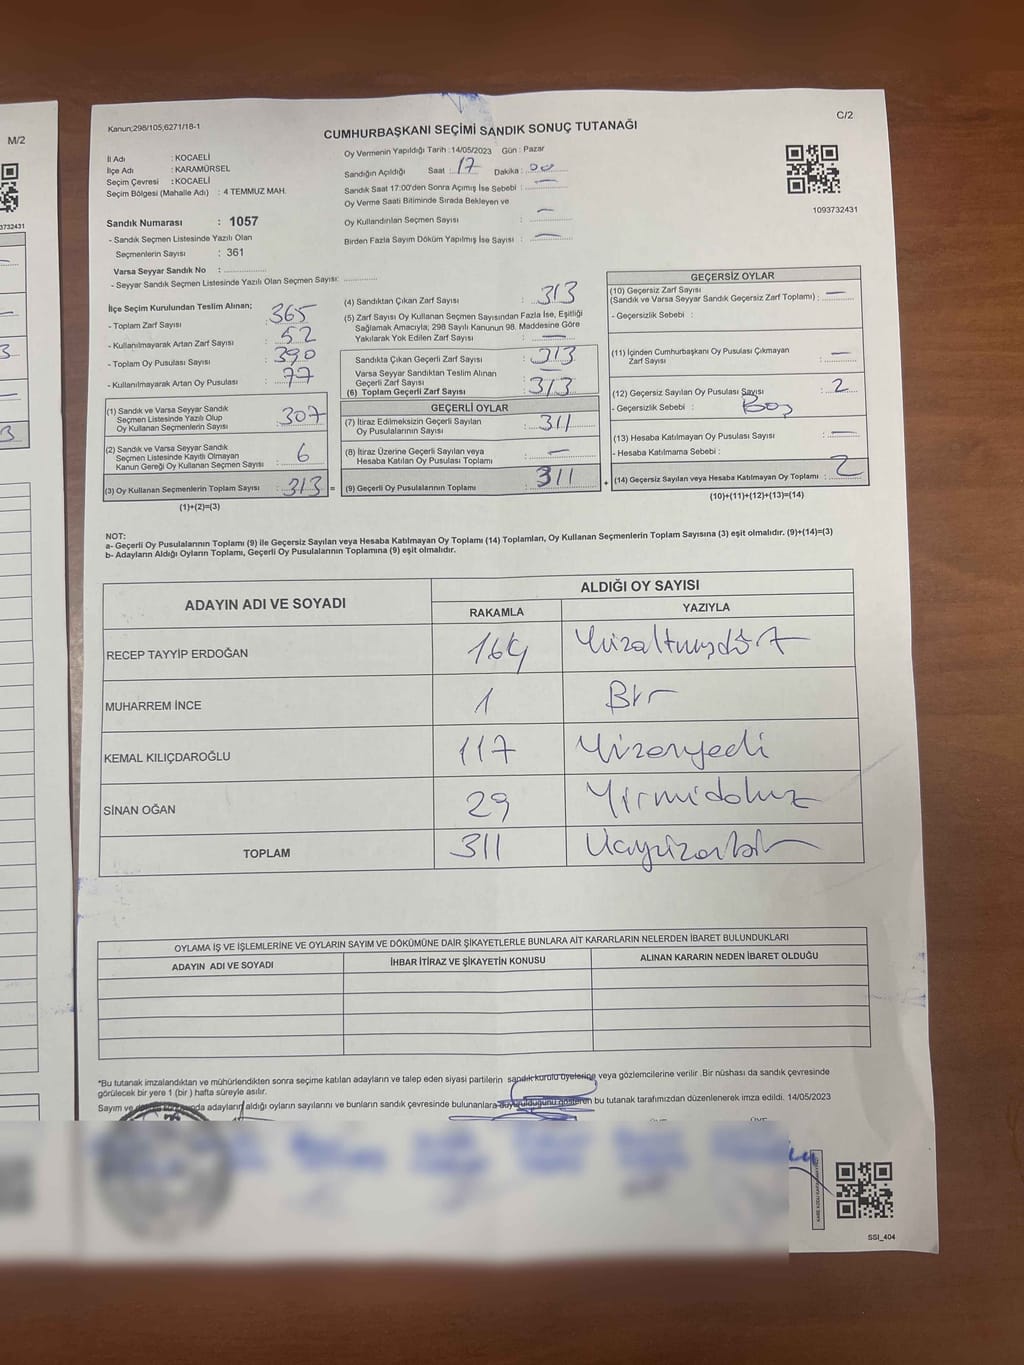 M/2
3732431
3
3
Kanun;298/105,6271/18-1
C/2
CUMHURBAŞKANI SEÇİMİ SANDIK SONUÇ TUTANAĞI
1093732431
İl Adı : KOCAELİ
İlçe Adı : KARAMÜRSEL
Seçim Çevresi : KOCAELİ
Seçim Bölgesi (Mahalle Adı) : 4 TEMMUZ MAH.
Sandık Numarası : 1057
- Sandık Seçmen Listesinde Yazılı Olan
Seçmenlerin Sayısı : 361
Varsa Seyyar Sandık No :
- Seyyar Sandık Seçmen Listesinde Yazılı Olan Seçmen Sayısı:
Oy Vermenin Yapıldığı Tarih : 14/05/2023 Gün : Pazar
Sandığın Açıldığı Saat : 17 Dakika : 00
Sandık Saat 17:00'den Sonra Açımış İse Sebebi : —
Oy Verme Saati Bitiminde Sırada Bekleyen ve
Oy Kullandırılan Seçmen Sayısı : —
Birden Fazla Sayım Döküm Yapılmış İse Sayısı : —
İlçe Seçim Kurulundan Teslim Alınan;
- Toplam Zarf Sayısı : 365
- Kullanılmayarak Artan Zarf Sayısı : 52
- Toplam Oy Pusulası Sayısı : 390
- Kullanılmayarak Artan Oy Pusulası : 77
(1) Sandık ve Varsa Seyyar Sandık
Seçmen Listesinde Yazılı Olup
Oy Kullanan Seçmenlerin Sayısı : 307
(2) Sandık ve Varsa Seyyar Sandık
Seçmen Listesinde Kayıtlı Olmayan
Kanun Gereği Oy Kullanan Seçmen Sayısı : 6
(3) Oy Kullanan Seçmenlerin Toplam Sayısı : 313 =
(1)+(2)=(3)
(4) Sandıktan Çıkan Zarf Sayısı : 313
(5) Zarf Sayısı Oy Kullanan Seçmen Sayısından Fazla İse, Eşitliği
Sağlamak Amacıyla; 298 Sayılı Kanunun 98. Maddesine Göre
Yakılarak Yok Edilen Zarf Sayısı : —
Sandıkta Çıkan Geçerli Zarf Sayısı : 313
Varsa Seyyar Sandıktan Teslim Alınan
Geçerli Zarf Sayısı : —
(6) Toplam Geçerli Zarf Sayısı : 313
GEÇERLİ OYLAR
(7) İtiraz Edilmeksizin Geçerli Sayılan
Oy Pusulalarının Sayısı : 311
(8) İtiraz Üzerine Geçerli Sayılan veya
Hesaba Katılan Oy Pusulası Toplamı : —
(9) Geçerli Oy Pusulalarının Toplamı : 311 +
GEÇERSİZ OYLAR
(10) Geçersiz Zarf Sayısı
(Sandık ve Varsa Seyyar Sandık Geçersiz Zarf Toplamı) : —
- Geçersizlik Sebebi :
(11) İçinden Cumhurbaşkanı Oy Pusulası Çıkmayan
Zarf Sayısı : —
(12) Geçersiz Sayılan Oy Pusulası Sayısı : 2
- Geçersizlik Sebebi : Boş
(13) Hesaba Katılmayan Oy Pusulası Sayısı : —
- Hesaba Katılmama Sebebi :
(14) Geçersiz Sayılan veya Hesaba Katılmayan Oy Toplamı : 2
(10)+(11)+(12)+(13)=(14)
NOT:
a- Geçerli Oy Pusulalarının Toplamı (9) ile Geçersiz Sayılan veya Hesaba Katılmayan Oy Toplamı (14) Toplamları, Oy Kullanan Seçmenlerin Toplam Sayısına (3) eşit olmalıdır. (9)+(14)=(3)
b- Adayların Aldığı Oyların Toplamı, Geçerli Oy Pusulalarının Toplamına (9) eşit olmalıdır.
ADAYIN ADI VE SOYADI
ALDIĞI OY SAYISI
RAKAMLA YAZIYLA
RECEP TAYYİP ERDOĞAN 164 Yüzaltmışdört
MUHARREM İNCE 1 Bir
KEMAL KILIÇDAROĞLU 117 Yüzonyedi
SİNAN OĞAN 29 Yirmidokuz
TOPLAM 311 Üçyüzonbir
OYLAMA İŞ VE İŞLEMLERİNE VE OYLARIN SAYIM VE DÖKÜMÜNE DAİR ŞİKAYETLERLE BUNLARA AİT KARARLARIN NELERDEN İBARET BULUNDUKLARI
ADAYIN ADI VE SOYADI İHBAR İTİRAZ VE ŞİKAYETİN KONUSU ALINAN KARARIN NEDEN İBARET OLDUĞU
*Bu tutanak imzalandıktan ve mühürlendikten sonra seçime katılan adayların ve talep eden siyasi partilerin sandık kurulu üyelerine veya gözlemcilerine verilir .Bir nüshası da sandık çevresinde
görülecek bir yere 1 (bir ) hafta süreyle asılır.
Sayım ve adayların aldığı oyların sayılarını ve bunların sandık çevresinde bulunanlara bu tutanak tarafımızdan düzenlenerek imza edildi. 14/05/2023
SSI_404